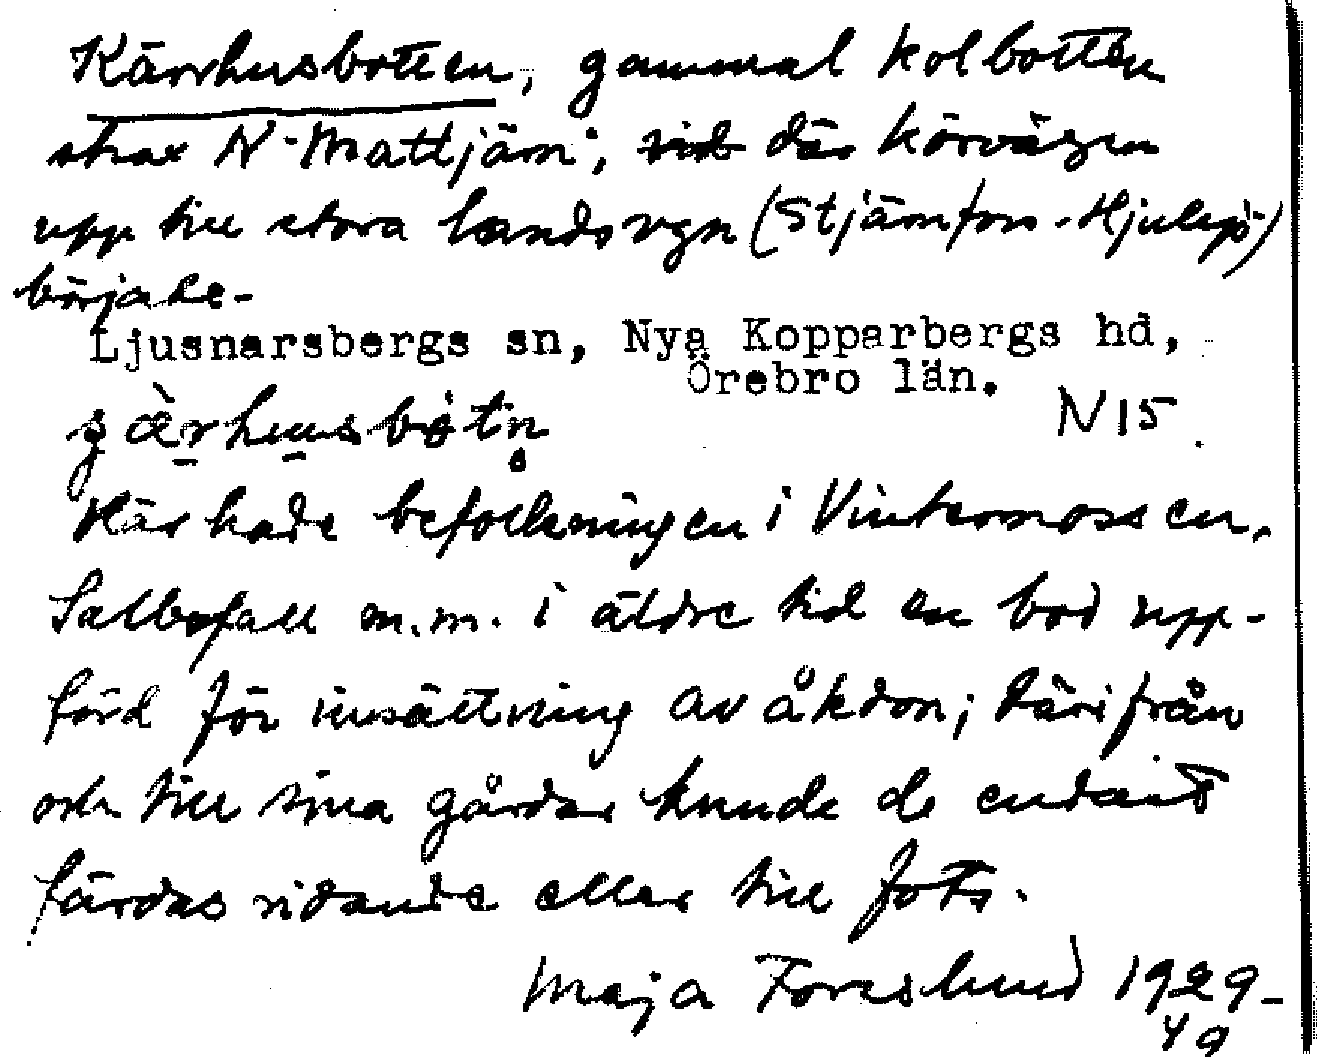 Kärrhusbotten, gammal kolbotten
strax N. Mattjärn, vid där körvägen
upp till stora landsvgn (Stjärnfors-Hjulsjö)
började.
Ljusnarsbergs sn, Nya Kopparbergs hd,
Örebro län.
N 15.
Här hade befolkningen i Vintermossen,
Salbofall m.m. i äldre tid en bod upp-
förd för insättning av åkdon; därifrån
och till sina gårdar kunde de endast
färdas ridande eller till fots.
Maja Forsslund 1929-
49